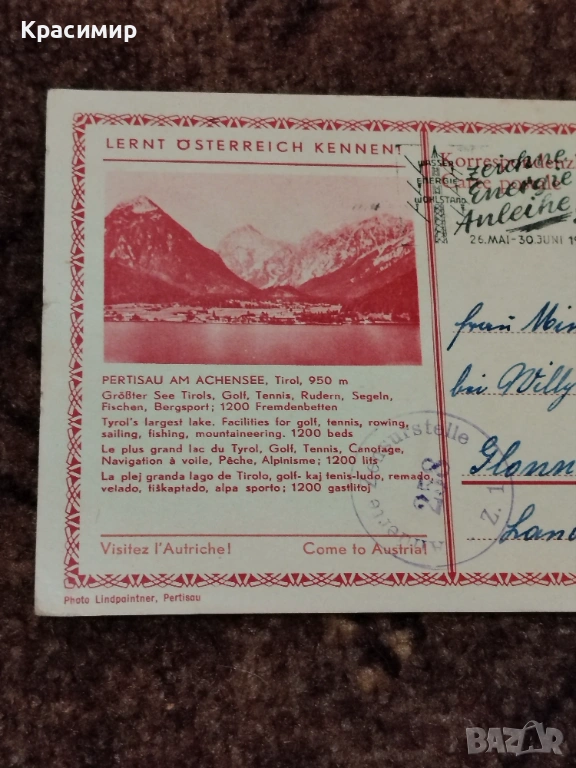 Красимир
LERNT ÖSTERREICH KENNEN!
PERTISAU AM ACHENSEE, Tirol, 950 m
Größter See Tirols, Golf, Tennis, Rudern, Segeln,
Fischen, Bergsport; 1200 Fremdenbetten
Tyrol's largest lake. Facilities for golf, tennis, rowing,
sailing, fishing, mountaineering. 1200 beds
Le plus grand lac du Tyrol, Golf, Tennis, Canotage,
Navigation à voile, Pêche, Alpinisme; 1200 lits
La plej granda lago de Tirolo, golf- kaj tenis-ludo, remado,
velado, fiŝkaptado, alpa sporto; 1200 gastlitoj
Visitez l'Autriche!
Come to Austria!
Photo Lindpaintner, Pertisau
Korrespondenz
Carte postale
WASSER
ENERGIE
WOHLSTAND
zeichne
Energie
Anleihe
26. MAI - 30. JUNI 19
Frau
bei Willy
Zensurstelle
Alliierte
Z. 1
BAZAR